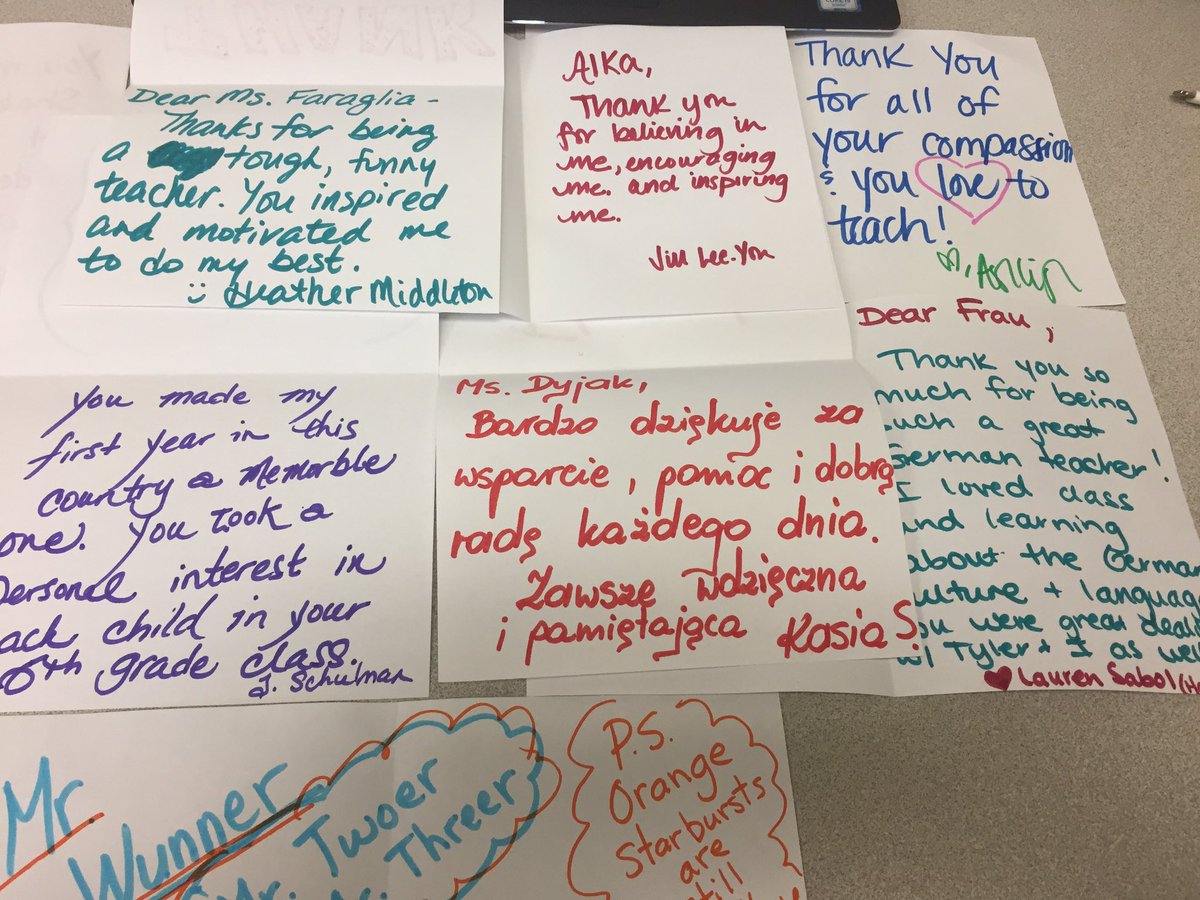 Dear Ms. Faraglia -
Thanks for being
a tough, funny
teacher. You inspired
and motivated me
to do my best.
Heather Middleton
AIKA,
Thank you
for believing in
me, encouraging
me. and inspiring
me.
Jim Lee-You
Thank You
for all of
your compassion
& you love to
teach!
You made my
first year in this
country a memorble
one. You took a
personel interest in
each child in your
6th grade class.
J. Schulman
Ms. Dyjak,
Bardzo dziękuję za
wsparcie, pomoc i dobrą
radę każdego dnia.
Zawsze wdzięczna
i pamiętająca Kasia S.
Dear Frau,
Thank you so
much for being
such a great
German teacher!
I loved class
and learning
about the German
culture + language
You were great dealin
w/ Tyler + I as well
Lauren Sabol
Mr
Wunner
Mr. Twoer
Mr. Threer
P.S.
Orange
Starbursts
are
still